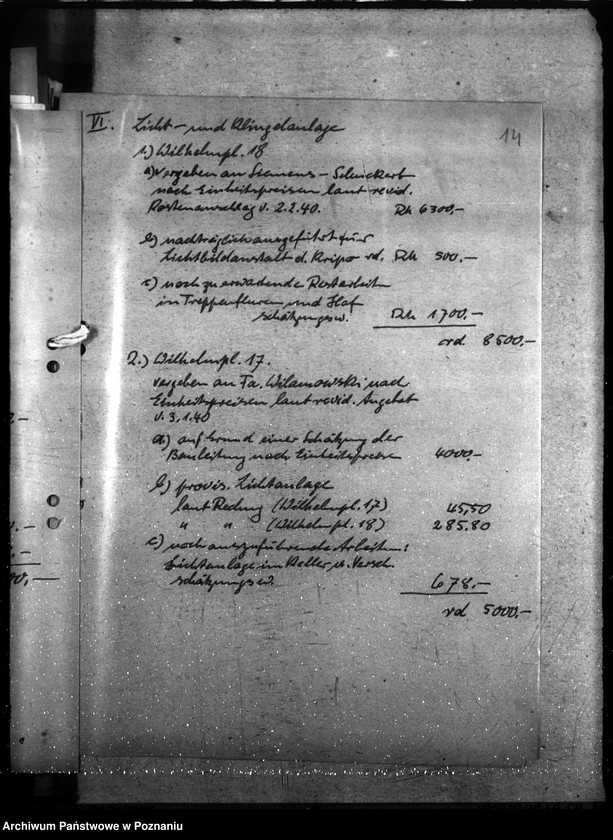 14
VI. Licht- und Klingelanlage
1.) Wilhelmpl. 18
a) vergeben an Siemens-Schuckert
nach Einheitspreisen laut revid.
Kostenanschlag v. 2.2.40. Rm 6300,-
b) nachträglich ausgeführt für
Lichtbildanstalt d. Kripo rd. Rm 500.-
c) noch zu erwartende Restarbeiten
in Treppenfluren und Hof
schätzungsw. Rm 1700.-
rd 8500.-
2.) Wilhelmpl. 17.
vergeben an Fa. Wilamowski nach
Einheitspreisen laut revid. Angebot
v. 3.1.40
a.) auf Grund einer Schätzung der
Bauleitung nach Einheitspreisen 4000.-
b.) provis. Lichtanlage
laut Rechng (Wilhelmpl. 17) 45,50
" " (Wilhelmpl. 18) 285.80
c.) noch auszuführende Arbeiten:
Lichtanlage im Keller u. Versch.
schätzungsw. 678.-
rd 5000.-
Archiwum Państwowe w Poznaniu